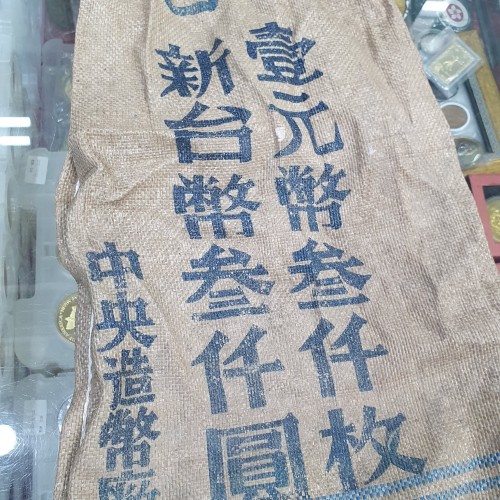 壹元幣叁仟枚
新台幣叁仟圓
中央造幣廠